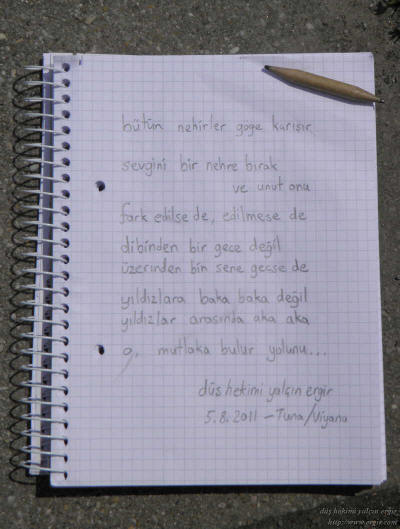 bütün nehirler göğe karışır
sevgini bir nehre bırak
ve unut onu
fark edilse de, edilmese de
dibinden bir gece değil
üzerinden bin sene geçse de
yıldızlara baka baka değil
yıldızlar arasında aka aka
o, mutlaka bulur yolunu...
düş hekimi yalçın ergir
5.8.2011 – Tuna/Viyana
düş hekimi yalçın ergir
http://www.ergir.com